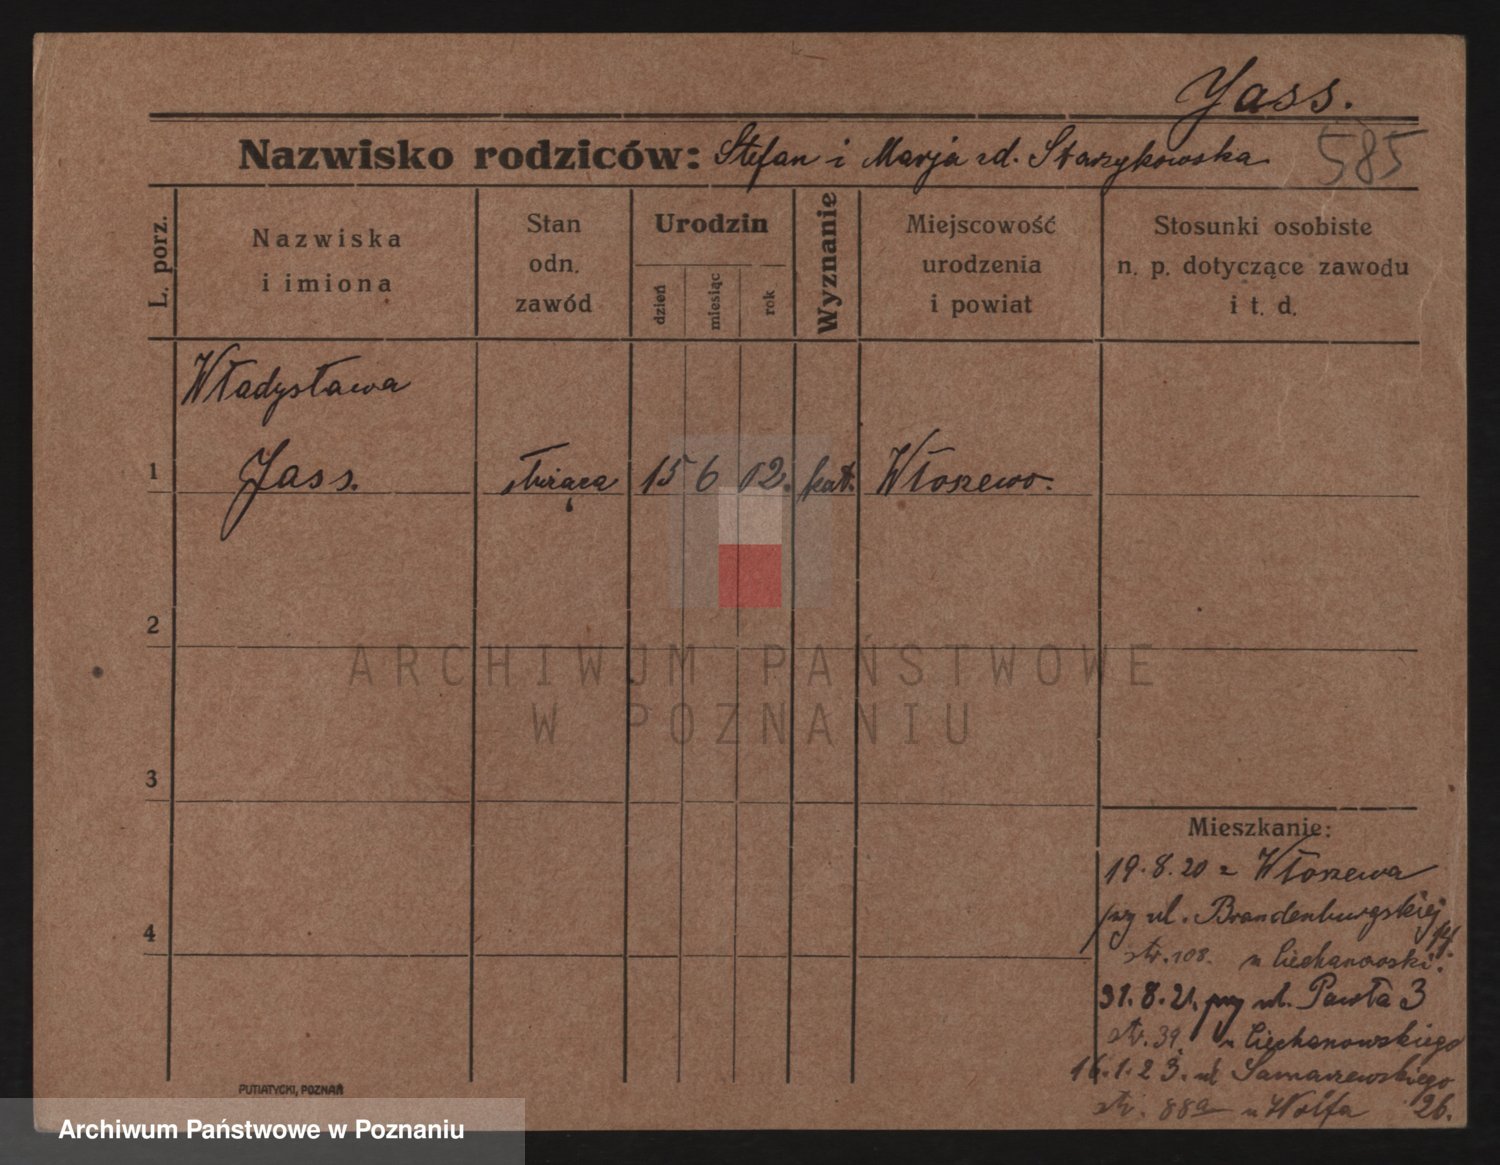 Jass.
585
Nazwisko rodziców: Stefan i Marja zd. Starzykowska
L. porz.
Nazwiska
i imiona
Stan
odn.
zawód
Urodzin
dzień
miesiąc
rok
Wyznanie
Miejscowość
urodzenia
i powiat
Stosunki osobiste
n. p. dotyczące zawodu
i t. d.
Władysława
1 Jass. służąca 15 6 12. kat. Włoszewo.
2
ARCHIWUM PAŃSTWOWE
W POZNANIU
3
Mieszkanie:
19.8.20 z Włoszewa
przy ul. Brandenburgskiej
14.
str. 108. u Ciechanowski.
4
31.8.21. przy ul. Pawła 3
str. 39. u Ciechanowskiego
16.1.23. ul Samarzewskiego
str. 88a u Wolfa 26.
PUTIATYCKI, POZNAŃ
Archiwum Państwowe w Poznaniu